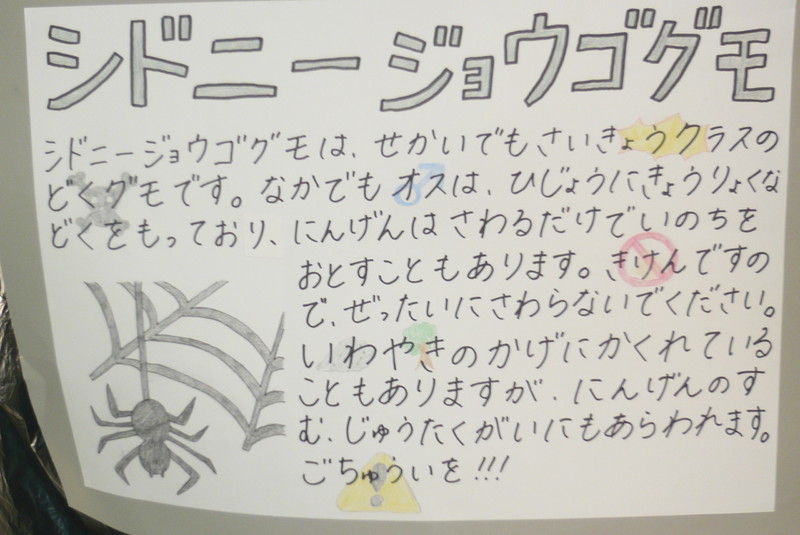 シドニージョウゴグモ
シドニージョウゴグモは、せかいでもさいきょうクラスの
どくグモです。なかでもオスは、ひじょうにきょうりょくな
どくをもっており、にんげんはさわるだけでいのちを
おとすこともあります。きけんですの
で、ぜったいにさわらないでください。
いわやきのかげにかくれている
こともありますが、にんげんのす
む、じゅうたくがいにもあらわれます。
ごちゅういを!!!